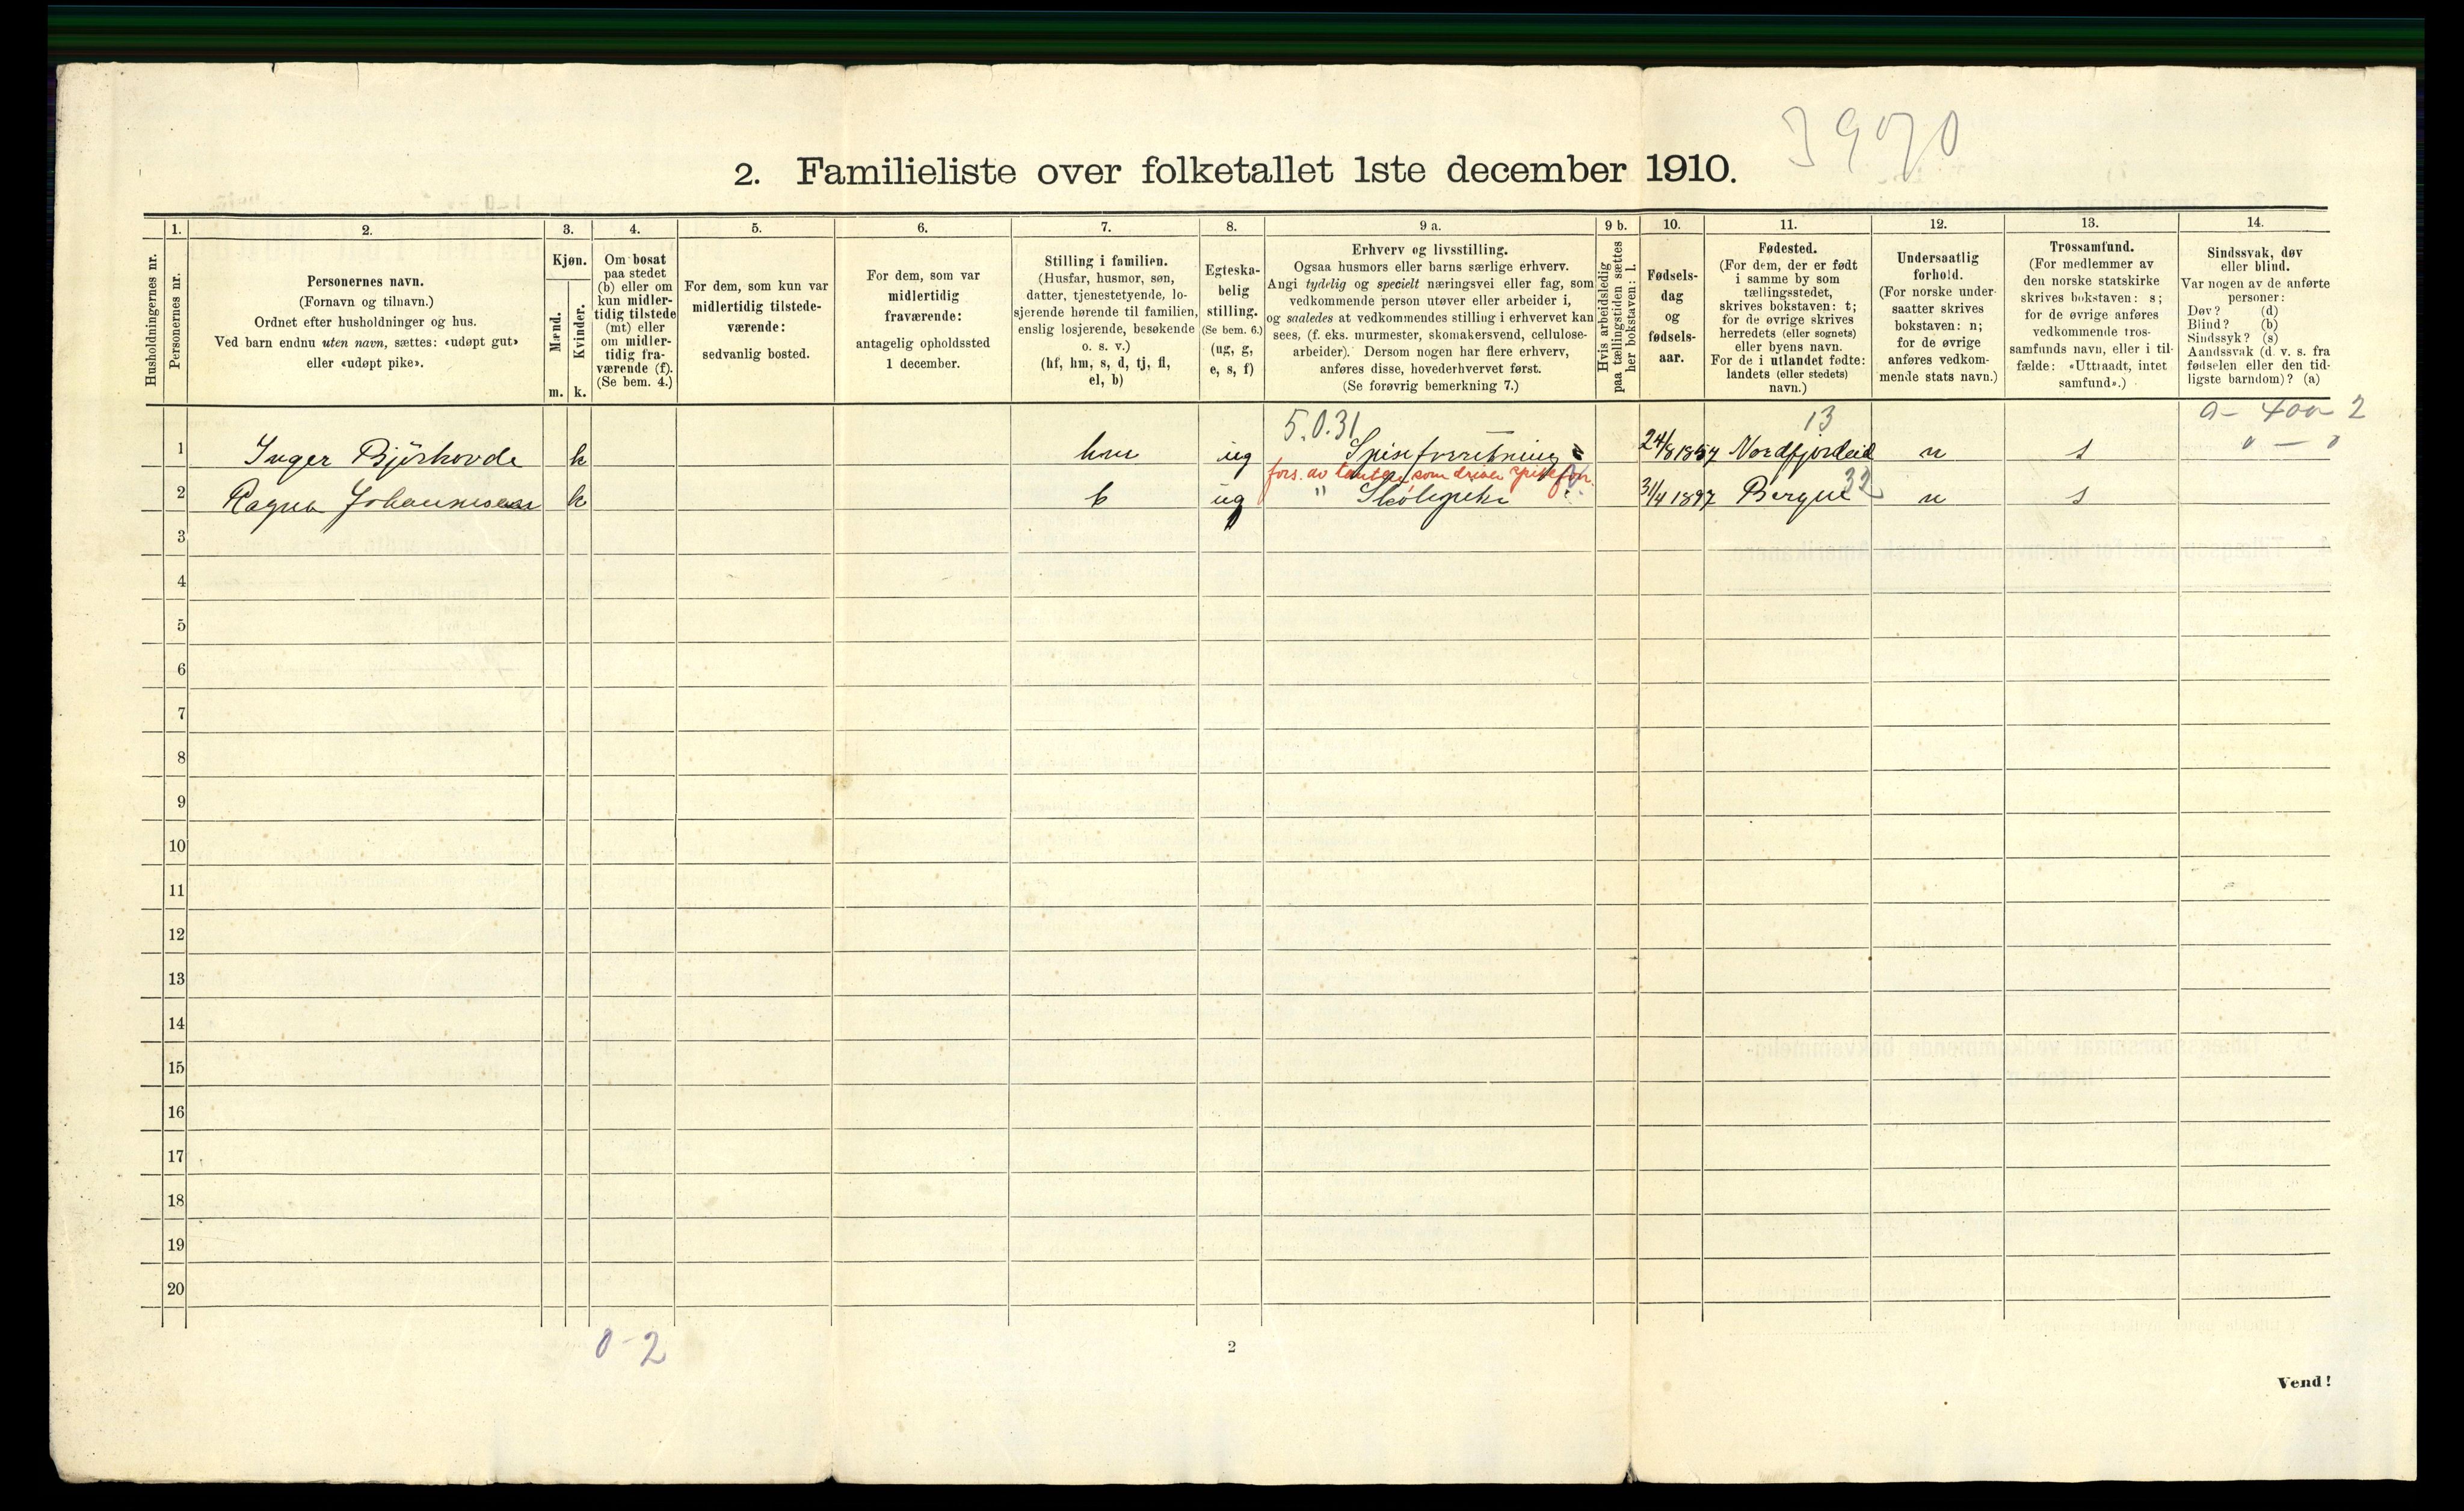 3970
2. Familieliste over folketallet 1ste december 1910.
1. 2. 3. 4. 5. 6. 7. 8. 9 a. 9 b. 10. 11. 12. 13. 14.
Husholdningernes nr.
Personernes nr.
Personernes navn.
(Fornavn og tilnavn.)
Ordnet efter husholdninger og hus.
Ved barn endnu uten navn, sættes: «udøpt gut»
eller «udøpt pike».
Kjøn.
Mænd.
Kvinder.
m. k.
Om bosat
paa stedet
(b) eller om
kun midler-
tidig tilstede
(mt) eller
om midler-
tidig fra-
værende (f).
(Se bem. 4.)
For dem, som kun var
midlertidig tilstede-
værende:
sedvanlig bosted.
For dem, som var
midlertidig
fraværende:
antagelig opholdssted
1 december.
Stilling i familien.
(Husfar, husmor, søn,
datter, tjenestetyende, lo-
sjerende hørende til familien,
enslig losjerende, besøkende
o. s. v.)
(hf, hm, s, d, tj, fl,
el, b)
Egteska-
belig
stilling.
(Se bem. 6.)
(ug, g,
e, s, f)
Erhverv og livsstilling.
Ogsaa husmors eller barns særlige erhverv.
Angi tydelig og specielt næringsvei eller fag, som
vedkommende person utøver eller arbeider i,
og saaledes at vedkommendes stilling i erhvervet kan
sees, (f. eks. murmester, skomakersvend, cellulose-
arbeider). Dersom nogen har flere erhverv,
anføres disse, hovederhvervet først.
(Se forøvrig bemerkning 7.)
Hvis arbeidsledig
paa tællingstiden sættes
her bokstaven: l.
Fødsels-
dag
og
fødsels-
aar.
Fødested.
(For dem, der er født
i samme by som
tællingsstedet,
skrives bokstaven: t;
for de øvrige skrives
herredets (eller sognets)
eller byens navn.
For de i utlandet fødte:
landets (eller stedets)
navn.)
Undersaatlig
forhold.
(For norske under-
saatter skrives
bokstaven: n;
for de øvrige
anføres vedkom-
mende stats navn.)
Trossamfund.
(For medlemmer av
den norske statskirke
skrives bokstaven: s;
for de øvrige anføres
vedkommende tros-
samfunds navn, eller i til-
fælde: «Uttraadt, intet
samfund».)
Sindssvak, døv
eller blind.
Var nogen av de anførte
personer:
Døv? (d)
Blind? (b)
Sindssyk? (s)
Aandssvak (d. v. s. fra
fødselen eller den tid-
ligste barndom)? (a)
5.0.31 13 0 – 400 – 2
1 Inger Bjørhovde k hm ug Spiseforretning 24/8 1857 Nordfjordeid n s 0 – 0
fors. av tanten, som driver spisefor.
2 Ragna Johannesen k b ug " Skolepike 31/4 1897 Bergen 32 n s
3
4
5
6
7
8
9
10
11
12
13
14
15
16
17
18
19
20
0-2
2
Vend!